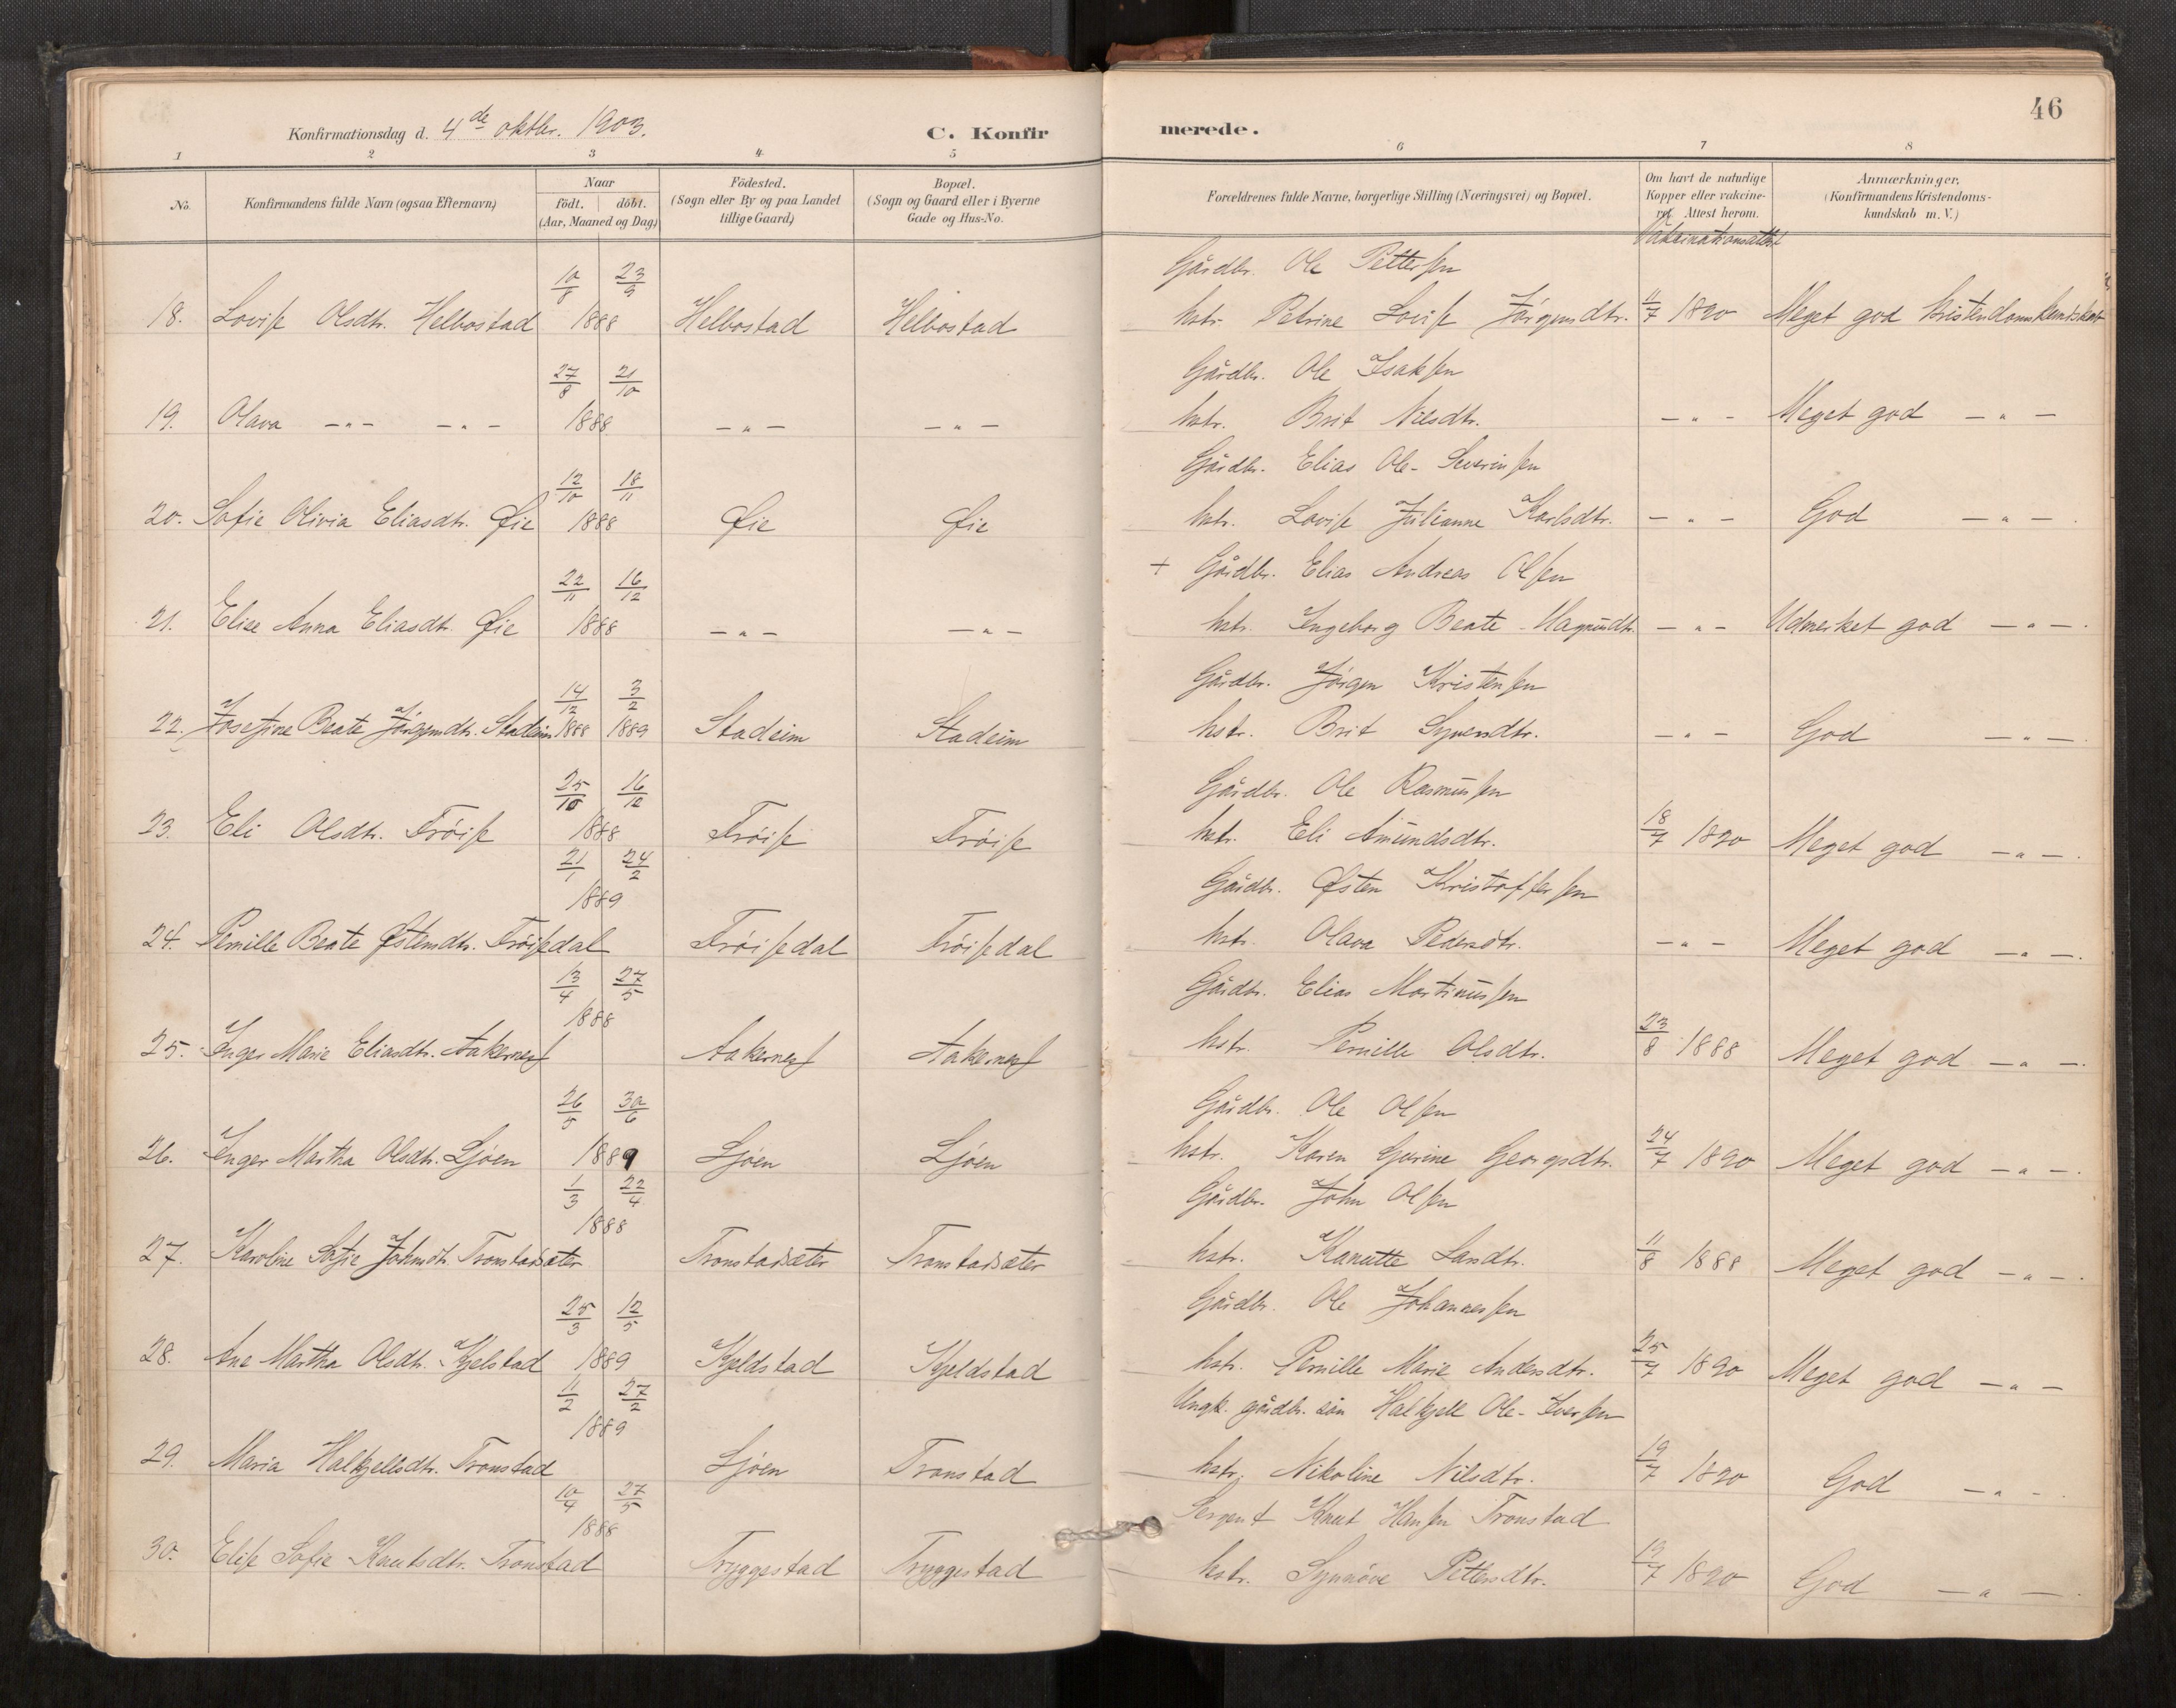 46
Konfirmationsdag d. 4de oktbr. 1903. C. Konfirmerede.
1 2 3 4 5 6 7 8
No. Konfirmandens fulde Navn (ogsaa Efternavn) Naar födt. döbt. (Aar, Maaned og Dag) Födested. (Sogn eller By og paa Landet tillige Gaard) Bopæl. (Sogn og Gaard eller i Byerne Gade og Hus-No. Forældrenes fulde Navne, borgerlige Stilling (Næringsvei) og Bopæl. Om havt de naturlige Kopper eller vakcineret. Attest herom. Anmærkninger. (Konfirmandens Kristendomskundskab m. V.)
Vakcinationsattest
10/8 23/9 Gårdbr. Ole Pettersen
18. Lovise Olsdtr. Helbostad 1888 Helbostad Helbostad hstr. Petrine Lovise Jörgensdtr. 11/7 1890 Meget god Kristendomskundskab
27/8 21/10 Gårdbr. Ole Isaksen
19. Olava —„— —„— 1888 —„— —„— hstr. Brit Nilsdtr. —„— Meget god —„—
12/10 18/11 Gårdbr. Elias Ole-Severinsen
20. Sofie Olivia Eliasdtr. Øie 1888 Øie Øie hstr. Lovise Julianne Karlsdtr. —„— God —„—.
22/11 16/12 + Gårdbr. Elias Andreas Olsen
21. Elise Anna Eliasdtr. Øie 1888 —„— —„— hstr. Ingeborg Beate Magnusdtr. —„— Udmerket god —„—.
14/12 3/2 Gårdbr. Jörgen Kristensen
22. Josefine Beate Jörgensdtr. Stadeim 1888 1889 Stadeim Stadeim hstr. Brit Syvendtr. —„— God —„—.
25/10 16/12 Gårdbr. Ole Rasmussen
23. Eli Olsdtr. Fröise 1888 Fröise Fröise hstr. Eli Amundsdtr. 18/7 1890 Meget god —„—.
21/1 24/2 Gårdbr. Østen Kristoffersen
1889
24. Pernille Beate Østensdtr. Fröisedal Fröisedal Fröisedal hstr. Olava Pedersdtr. —„— Meget god —„—.
13/4 27/5 Gårdbr. Elias Martinussen
1888
25. Inger Marie Eliasdtr. Aakernes Aakernes Aakernes hstr. Pernille Olsdtr. 23/8 1888 Meget god —„—.
26/5 30/6 Gårdbr. Ole Olsen
26. Inger Martha Olsdtr. Ljöen 1889 Ljöen Ljöen hstr. Karen Gurine Georgsdtr. 24/7 1890 Meget god —„—.
1/3 22/4 Gårdbr. John Olsen
1888
27. Karoline Sofie Johnsdtr. Tronstadsæter Tronstadsæter Tronstadsæter hstr. Kanutte Larsdtr. 11/8 1888 Meget god —„—.
25/3 12/5 Gårdbr. Ole Johannessen
28. Ane Martha Olsdtr. Kjelstad 1889 Kjeldstad Kjeldstad hstr. Pernille Marie Andersdtr. 25/7 1890 Meget god —„—
11/2 27/2 Ungk. gårdbr. sön Halkjell Ole-Iversen
1889
29. Maria Halkjellsdtr. Tronstad Ljöen Tronstad hstr. Nikoline Nilsdtr. 19/7 1890 God —„—
10/4 27/5 Sergent Knut Hansen Tronstad
1888
30. Elise Sofie Knutsdtr. Tronstad Tryggestad Tryggestad hstr. Synnöve Pettersdtr. 19/7 1890 God —„—.